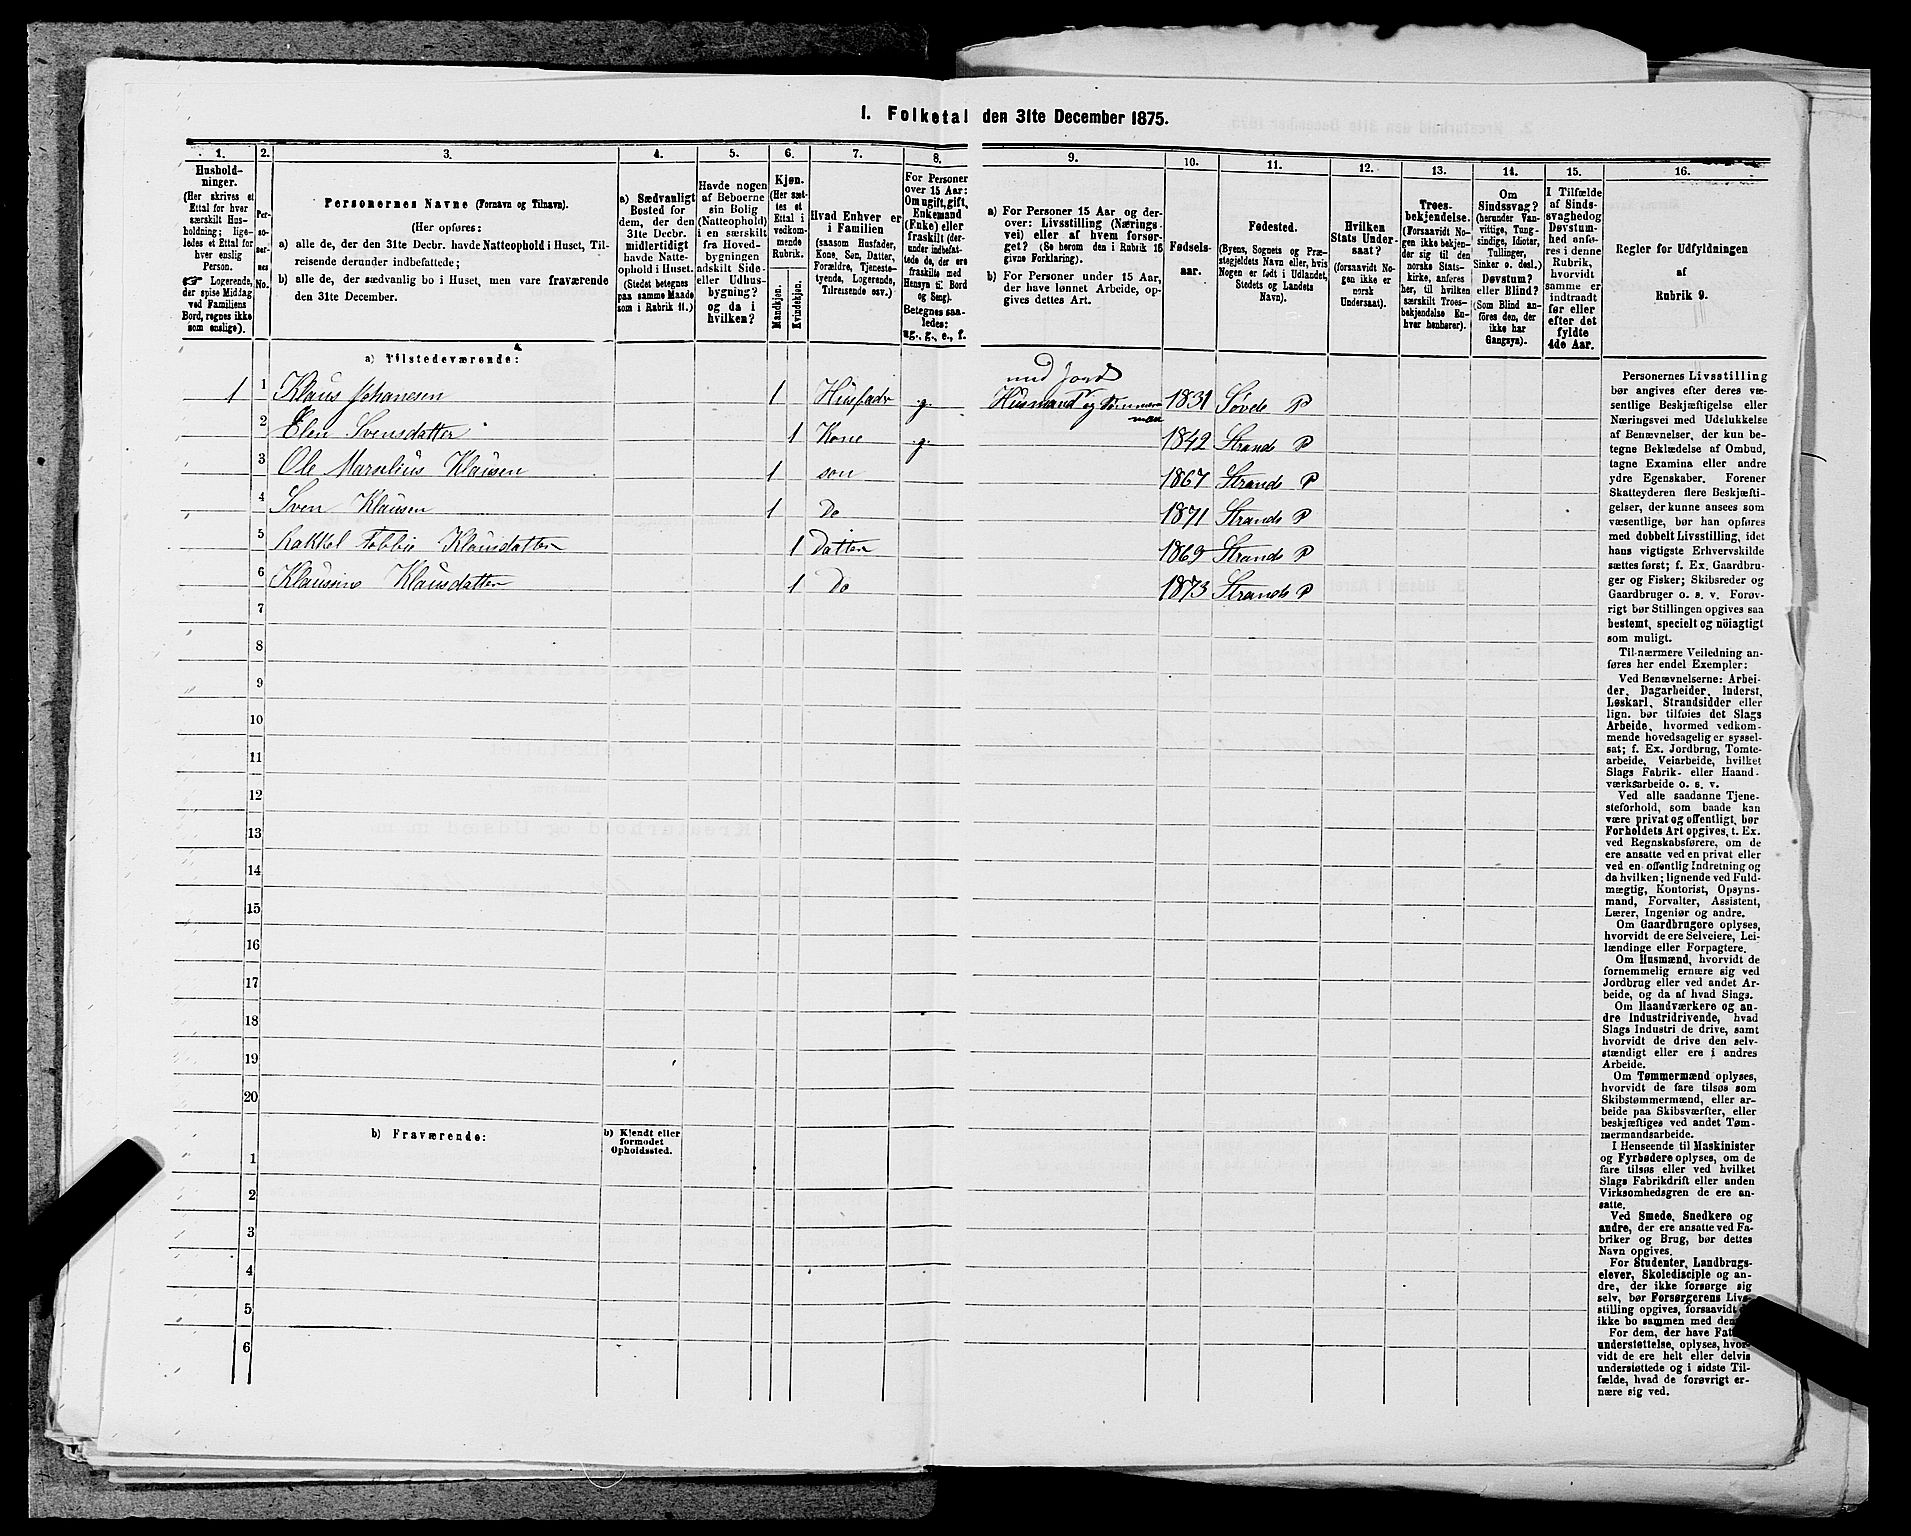 1. Folketal den 31te December 1875.
1.
2.
3.
4.
5.
6.
7.
8.
9.
10.
11.
12.
13.
14.
15.
16.
Husholdninger.
(Her skrives et
Ettal for hver
særskilt Husholdning;
ligeledes et Ettal for
hver enslig
Person.
☞ Logerende,
der spise Middag
ved Familiens
Bord, regnes ikke
som enslige).
Personernes
No.
Personernes Navne (Fornavn og Tilnavn).
(Her opføres:
a) alle de, der den 31te Decbr. havde Natteophold i Huset, Tilreisende derunder indbefattede;
b) alle de, der sædvanlig bo i Huset, men vare fraværende
den 31te December.
a) Sædvanligt
Bosted for
dem, der den
31te Decbr.
midlertidigt
havde Natteophold i Huset.
(Stedet betegnes
paa samme Maade
som i Rubrik 11.)
Havde nogen
af Beboerne
sin Bolig
(Natteophold)
i en særskilt
fra Hovedbygningen
adskilt Side-
eller Udhusbygning?
og da i
hvilken?
Kjøn.
(Her sættes et
Ettal i
vedkommende
Rubrik.
Mandkjøn.
Kvindekjøn.
Hvad Enhver er
i Familien
(saasom Husfader,
Kone, Søn, Datter,
Forældre, Tjenestetyende, Logerende,
Tilreisende osv.)
For Personer
over 15 Aar:
Om ugift, gift,
Enkemand
(Enke) eller
fraskilt (derunder indbefattede de, der ere
fraskilte med
Hensyn til Bord
og Seng).
Betegnes saaledes:
ug., g., e., f.
a) For Personer 15 Aar og derover: Livsstilling (Næringsvei) eller af hvem forsørget? (Se herom den i Rubrik 16
givne Forklaring).
b) For Personer under 15 Aar,
der have lønnet Arbeide, opgives dettes Art.
Fødselsaar.
Fødested.
(Byens, Sognets og Præstegjeldets Navn eller, hvis
Nogen er født i Udlandet,
Stedets og Landets
Navn).
Hvilken
Stats Undersaat?
(forsaavidt Nogen ikke er
norsk
Undersaat).
Troesbekjendelse.
(Forsaavidt Nogen ikke bekjender sig til den
norske Statskirke, anføres
her, til hvilken
særskilt Troesbekjendelse Enhver henhører).
Om
Sindssvag?
(herunder Vanvittige, Tungsindige, Idioter,
Tullinger,
Sinker o. desl.)
Døvstum?
eller Blind?
(Som Blind anføres den, der
ikke har
Gangsyn).
I Tilfælde
af Sindssvaghed og
Døvstumhed anføres i denne
Rubrik,
hvorvidt
samme er
indtraadt
før eller
efter det
fyldte
4de Aar.
Regler for Udfyldningen
af
Rubrik 9.
a) Tilstedeværende:
med Jord
1 1 Klaus Johanesen 1 Husfader g. Husmand og Tømmerman 1831 Søvde P
2 Elen Svensdatter 1 Kone g. 1842 Strands P
3 Ole Marselius Klausen 1 son 1867 Strands P
4 Sven Klausen 1 Do 1871 Strands P
5 Rakkel Tobbie Klausdatter 1 Datter 1869 Strands P
6 Klaussine Klausdatter 1 Do 1873 Strands P
7
8
9
10
11
12
13
14
15
16
17
18
19
20
b) Fraværende:
b) Kjendt eller
formodet
Opholdssted.
1
2
3
4
5
6
Personernes Livsstilling
bør angives efter deres væsentlige Beskjæftigelse eller
Næringsvei med Udelukkelse
af Benævnelser, der kun betegne Beklædelse af Ombud,
tagne Examina eller andre
ydre Egenskaber. Forener
Skatteyderen flere Beskjæftigelser, der kunne ansees som
væsentlige, bør han opføres
med dobbelt Livsstilling, idet
hans vigtigste Erhvervskilde
sættes først; f. Ex. Gaardbruger og Fisker; Skibsreder og
Gaardbruger o. s. v. Forøvrigt bør Stillingen opgives saa
bestemt, specielt og nöiagtigt
som muligt.
Til nærmere Veiledning anføres her endel Exempler:
Ved Benævnelserne: Arbeider, Dagarbeider, Inderst,
Løskarl, Strandsidder eller
lign. bør tilføies det Slags
Arbeide, hvormed vedkommende hovedsagelig er sysselsat; f. Ex. Jordbrug, Tomtearbeide, Veiarbeide, hvilket
Slags Fabrik- eller Haandværksarbeide o. s. v.
Ved alle saadanne Tjenesteforhold, som baade kan
være privat og offentlig, bør
Forholdets Art opgives, t. Ex.
ved Regnskabsførere, om de
ere ansatte ved en privat eller
ved en offentlig Indretning og
da hvilken; lignende ved Fuldmægtig, Kontorist, Opsynsmand, Forvalter, Assistent,
Lærer, Ingeniør og andre.
Om Gaardbrugere oplyses,
hvorvidt de ere Selveiere, Leilændinge eller Forpagtere.
Om Husmænd, hvorvidt de
fornemmelig ernære sig ved
Jordbrug eller ved andet Arbeide, og da af hvad Slags.
Om Haandværkere og andre Industridrivende, hvad
Slags Industri de drive, samt
hvorvidt de drive den selvstændigt eller ere i andres
Arbeide.
Om Tømmermænd oplyses,
hvorvidt de fare tilsøs som
Skibstømmermænd, eller arbeide paa Skibsværfter, eller
beskjæftiges ved andet Tømmermandsarbeide.
I Henseende til Maskinister
og Fyrbødere oplyses, om de
fare tilsøs eller ved hvilket
Slags Fabrikdrift eller anden
Virksomhedsgren de ere ansatte.
Ved Smede, Snedkere og
andre, der ere ansatte ved Fabriker og Brug, bør dettes
Navn opgives.
For Studenter, Landbrugselever, Skoledisciple og andre, der ikke forsørge sig
selv, bør Forsørgerens Livsstilling opgives, forsaavidt
ikke bo sammen med
For dem, der have
understøttelse, oplyses, hvorvidt de ere helt eller delvis
understøttede og i sidste Tilfælde, hvad de forøvrigt ernære sig ved.